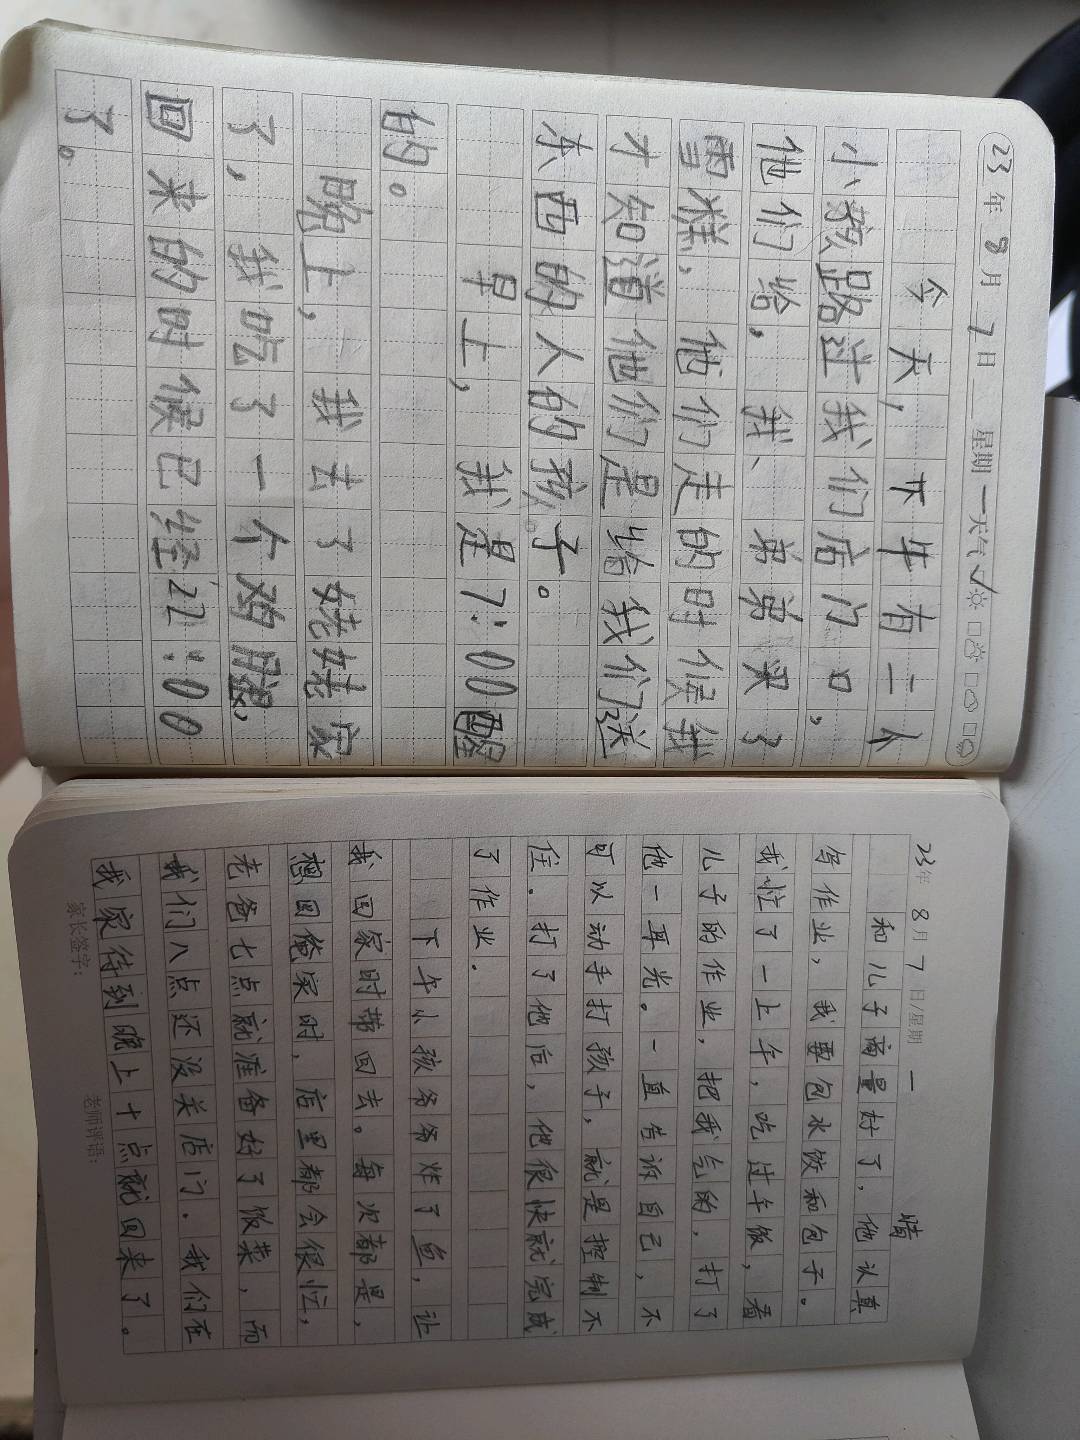 23年8月7日 星期一天气
今天，下午有二个
小孩路过我们店门口，
他们给，我、弟弟买了
雪糕，他们走的时候我
才知道他们是给我们送
东西的人的孩子。
早上，我是7:00醒
的。
晚上，我去了姥姥家
了，我吃了一个鸡腿，
回来的时候已经22:00
了。
23年8月7日/星期一 晴
和儿子商量好了，他认真
写作业，我要包水饺和包子。
我忙了一上午，吃过午饭，看
儿子的作业，把我气的，打了
他一耳光。一直告诉自己，不
可以动手打孩子，就是控制不
住．打了他后，他很快就完成
了作业．
下午小孩爷爷炸了鱼，让
我回家时带回去。每次都是，
想回俺家时，店里都会很忙，
老爸七点就准备好了饭菜，而
我们八点还没关店门．我们在
我家待到晚上十点就回来了。
家长签字：
老师评语：